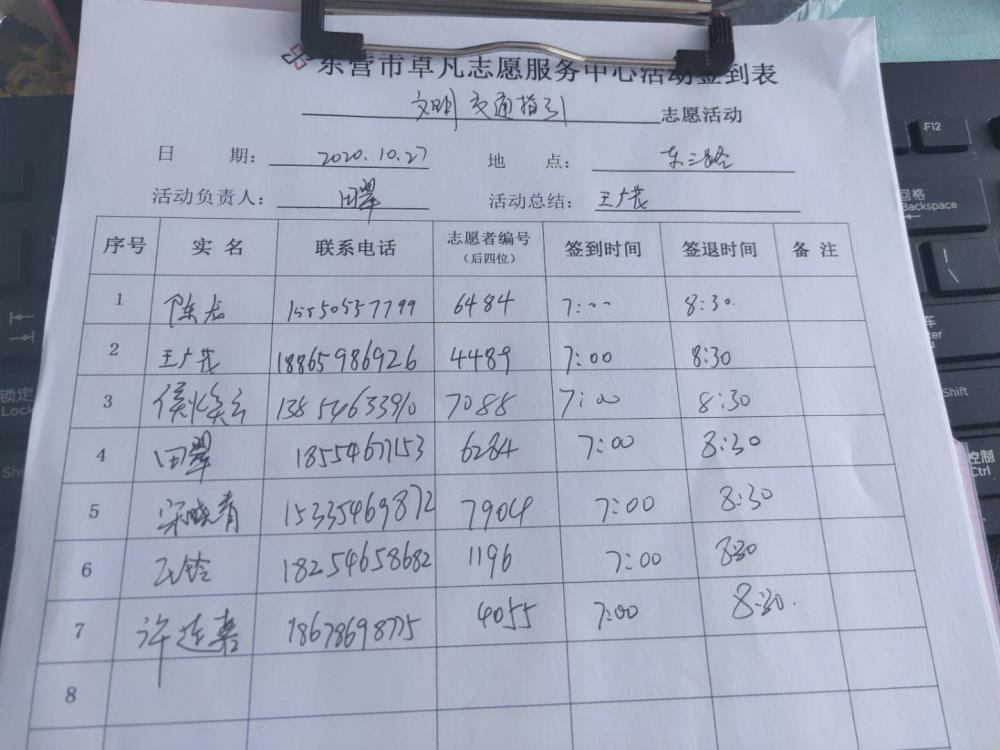 东营市卓凡志愿服务中心活动签到表
文明交通指引 志愿活动
日 期: 2020.10.27 地 点: 东二路
活动负责人: 田翠 活动总结: 王广茂
序号 实 名 联系电话 志愿者编号(后四位) 签到时间 签退时间 备 注
1 陈龙 15550557799 6484 7:00 8:30
2 王广茂 18865986926 4489 7:00 8:30
3 13854633910 7088 7:00 8:30
4 田翠 18554677153 6284 7:00 8:30
5 梁晓青 15335469872 7904 7:00 8:30
6 18254658682 1196 7:00 8:30
7 许连嘉 18678698775 4055 7:00 8:30
8
F12
回格
Backspace
Shift
控制
Ctrl
锁定